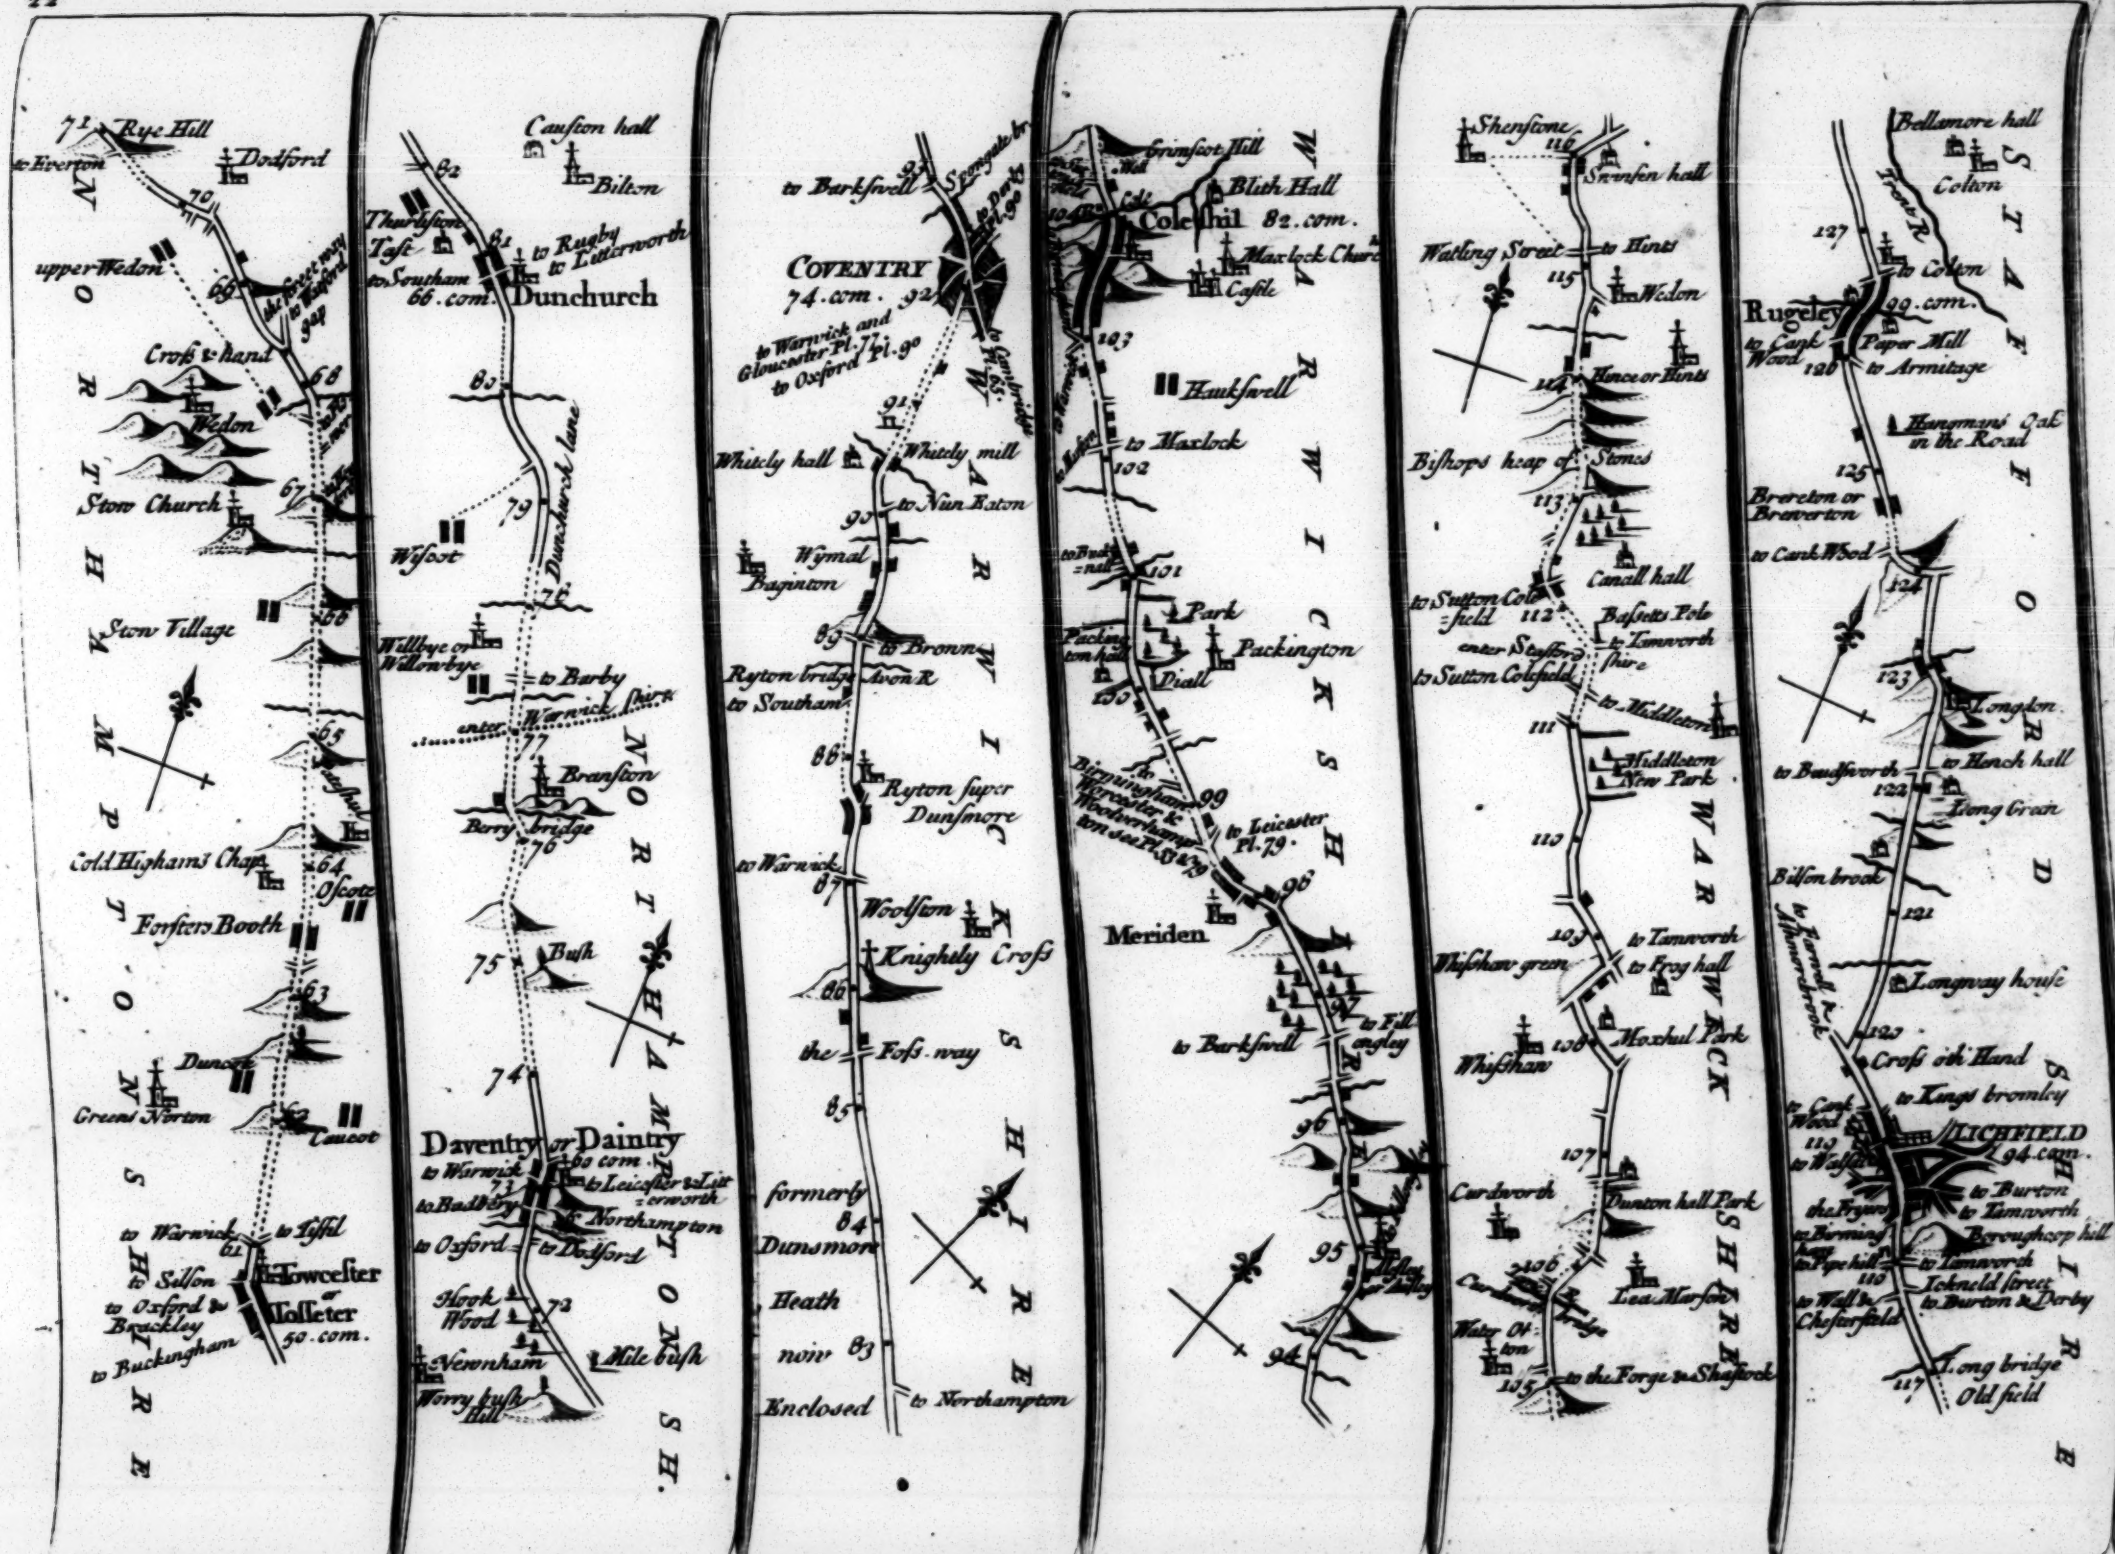 22
71
Rye Hill
to Everton
Dodford
70
upper Wedon
69
the street way
to Watford
gap
Croſs & hand
68
Wedon
Stow Church
67
66
Stow Village
65
Cold Highams Chap.
64
Oſcote
Forſters Booth
63
Duncot
Greens Norton
62
Caucot
to Warwick
to Tiffil
61
to Silſon
Towceſter
or
Toſſeter
50.com.
to Oxford &
Brackley
to Buckingham
NORTHAMPTONSHIRE
Cauſton hall
82
Bilton
Thurlſton
Taſt
81
to Rugby
to Litterworth
to Southam
66.com.
Dunchurch
80
Dunchurch lane
79
Wiſcot
78
Willbye or
Willowbye
to Barby
enter Warwick ſhire
77
Branſton
Berry bridge
76
75
Buſh
74
Daventry or Daintry
60 com.
to Warwick
73
to Leiceſter & Litt
=erworth
to Badbery
to Northampton
to Oxford
to Dodford
Hook
Wood
72
Newnham
Mile buſh
Worry buſh
Hill
NORTHAMPTONSH.
93
Spongate br.
to Barkſwell
to Darby
Pl. 90
COVENTRY
74.com.
92
to Warwick and
Glouceſter Pl. 77.
to Oxford Pl. 90
to Cambridge
Pl. 65.
91
Whitely hall
Whitely mill
to Nun Eaton
90
Wymal
Baginton
89
to Brown
Ryton bridge
Avon R
to Southam
88
Ryton ſuper
Dunſmore
to Warwick
87
Woolſton
Knightly Croſs
86
the Foſs-way
85
formerly
84
Dunsmore
Heath
now
83
Enclosed
to Northampton
WARWICKSHIRE
Grimſcot Hill
Blith Hall
104
Cole
Coleſhil 82.com.
Maxlock Church
Caſtle
103
Hawkſwell
to Maxlock
102
101
Park
Packing
ton hall
Packington
Diall
100
to
Birmingham
Worceſter &
Woolverhamp
ton see Pl.
99
to Leiceſter
Pl. 79.
98
Meriden
97
to Fill
ongley
to Barkſwell
96
95
94
WARWICKSHIRE
Shenſtone
116
Swinſen hall
Watling Street
to Hints
115
Wedon
114
Hence or Hints
Biſhops heap of Stones
113
Canall hall
to Sutton Cole
=field
112
Baſſetts Pole
to Tamworth
enter Stafford
ſhire
to Sutton Colefield
to Middleton
111
Middleton
New Park
110
109
to Tamworth
Whiſshaw green
to Frog hall
108
Moxhul Park
Whiſshaw
107
Curdworth
Dunton hall Park
106
Lea Marſon
Water Ot
ton
105
to the Forge & Shaſtock
WARWICKSHIRE
Bellamore hall
Colton
Trent R
127
to Colton
99.com.
Rugeley
to Cank
Wood
Paper Mill
126
to Armitage
Hangmans Oak
in the Road
125
Brereton or
Brewerton
to Cank Wood
124
123
Longdon
to Beudſworth
to Hench hall
122
Long Green
Bilſon brook
121
to Farwell &
Aſhmorebrook
Longway houſe
120
Croſs oth Hand
to Kings bromley
to Cank
Wood
119
LICHFIELD
94.com.
to Walſall
to Burton
the Fryers
to Tamworth
to Birming
ham
Boroughcop hill
to Pipe hill
to Tamworth
118
Ickneld ſtreet
to Wall &
Cheſterfield
to Burton & Derby
Long bridge
117
Old field
STAFFORDSHIRE